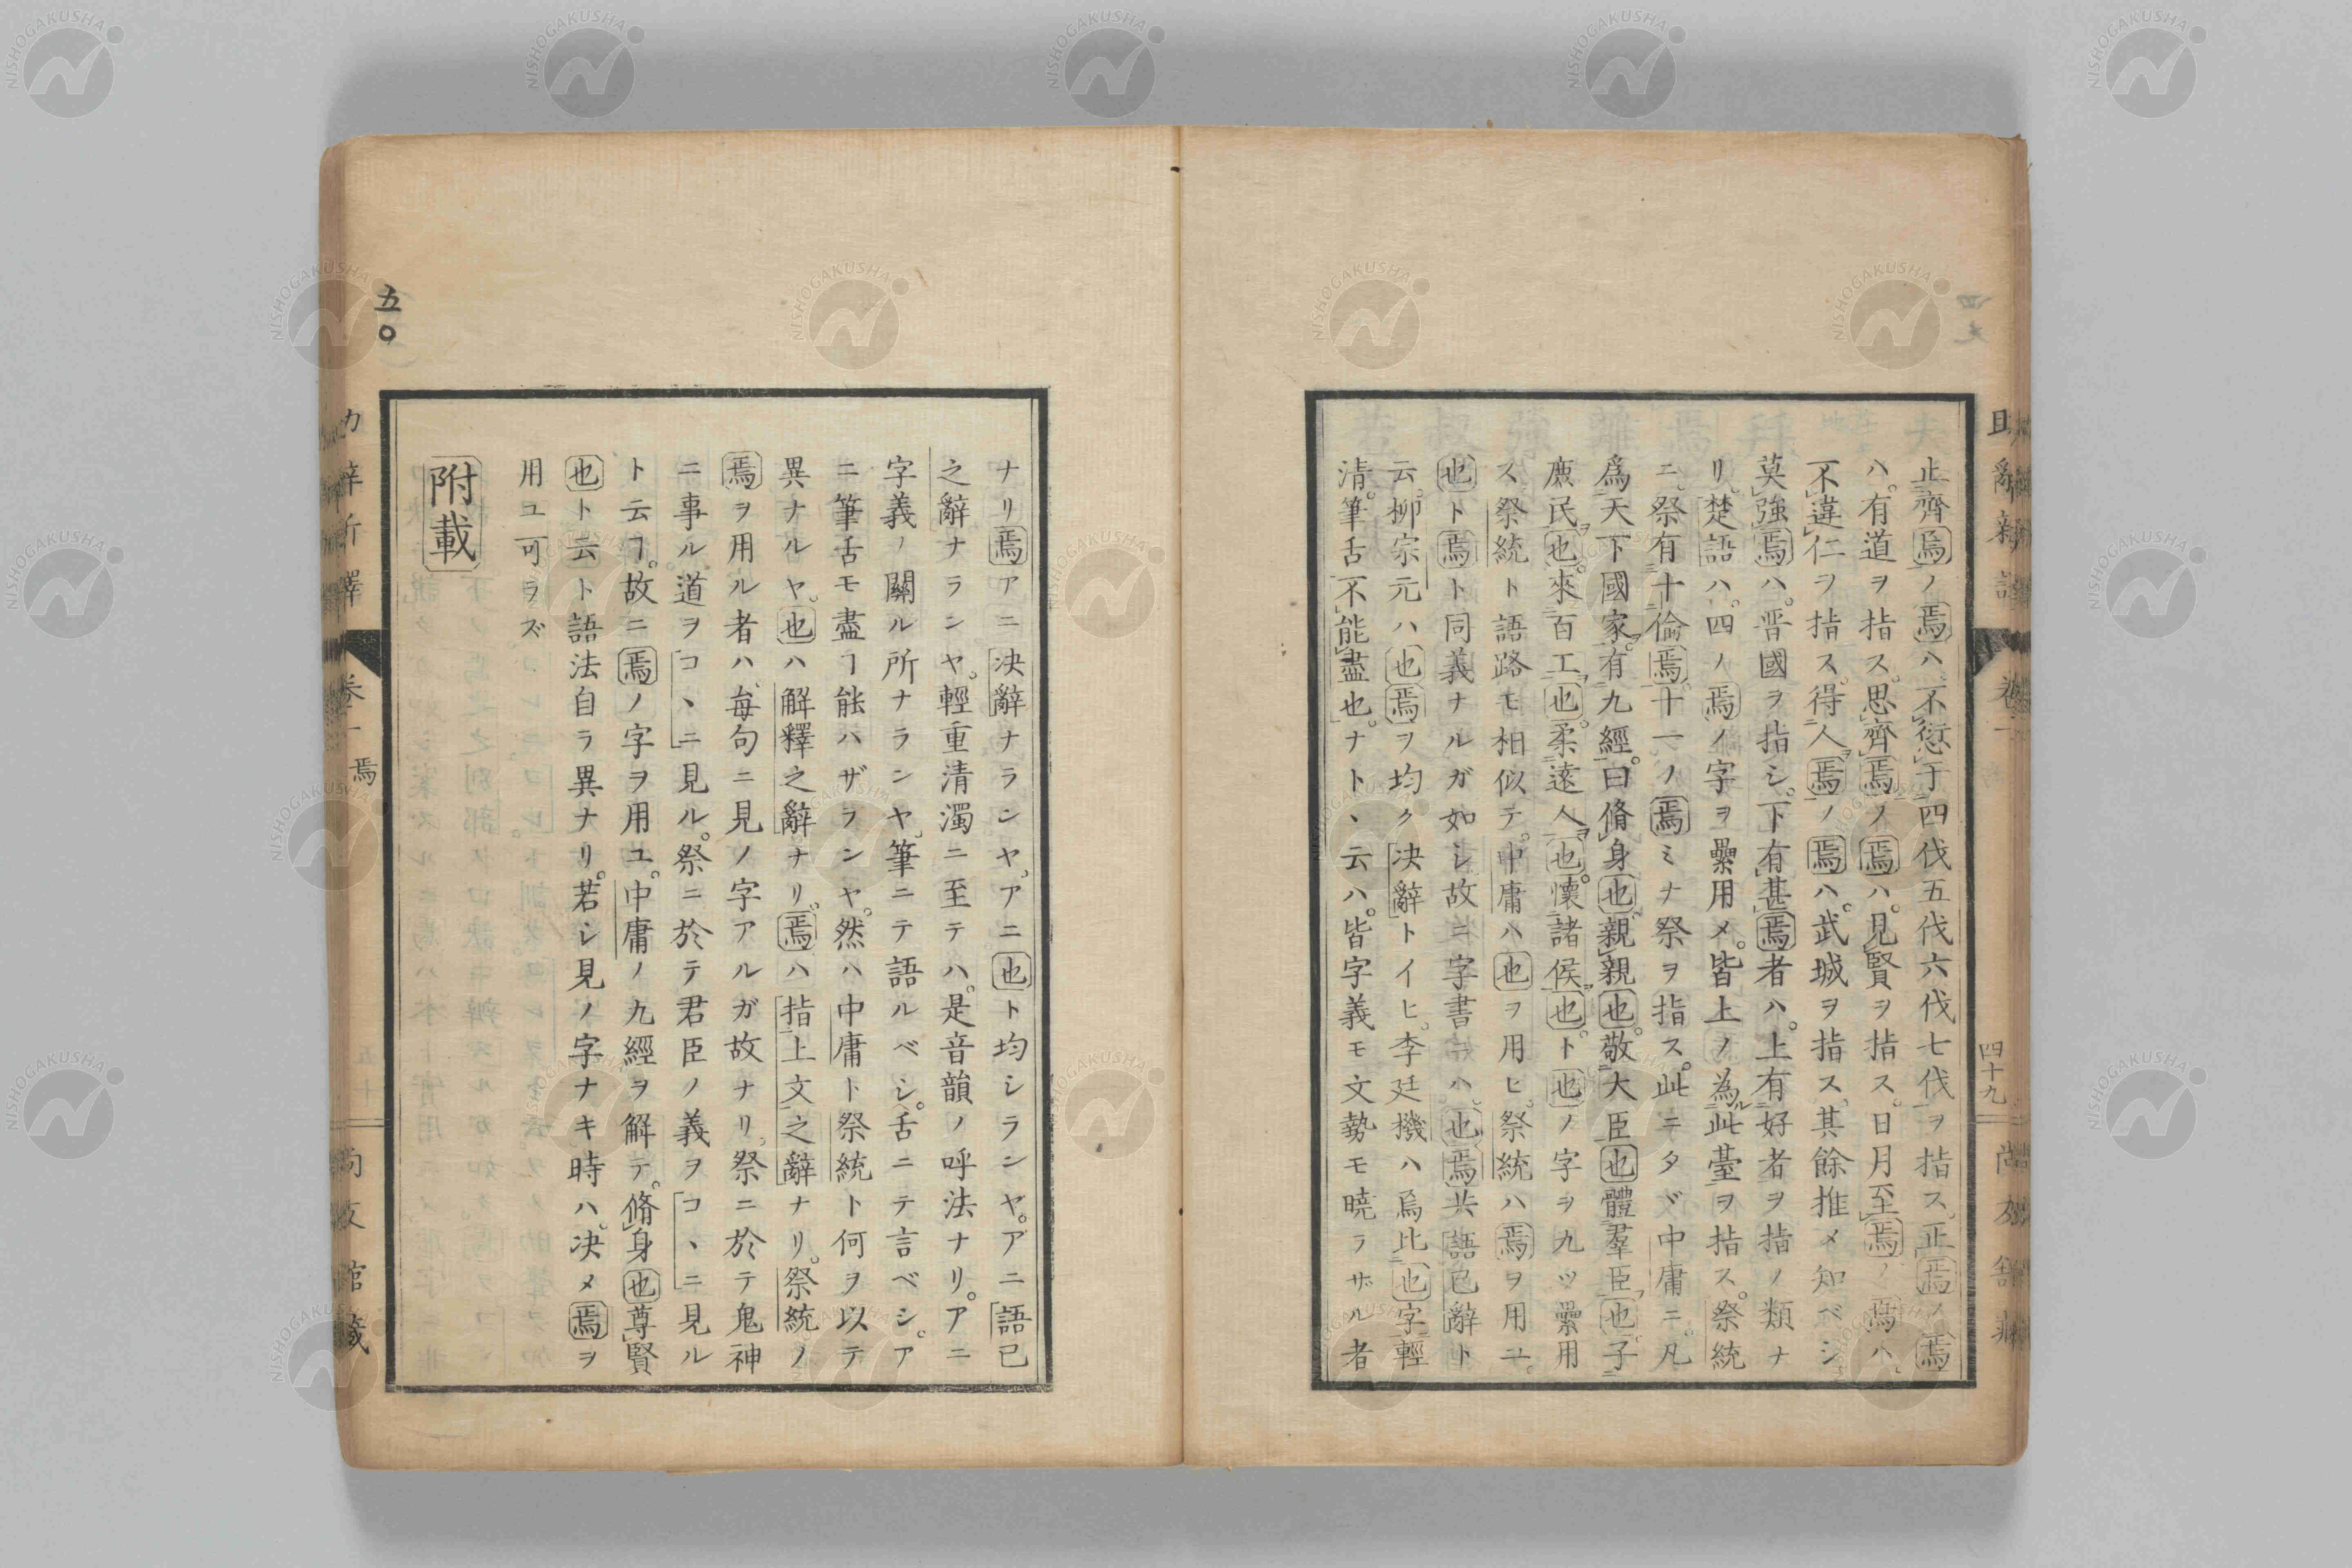 止齊焉ノ焉ハ、不愆于四伐五伐六伐七伐ヲ指ス。正焉ノ焉
ハ。有道ヲ指ス。思齊焉ノ焉ハ。見賢ヲ指ス。日月至焉ノ焉ハ、
不違仁ヲ指ス。得人焉ノ焉ハ。武城ヲ指ス。其餘推メ知ベシ
莫強焉ハ。晋國ヲ指シ。下有甚焉者ハ。上有好者ヲ指ノ類ナ
リ。楚語ハ。四ノ焉ノ字ヲ纍用メ。皆上ノ為此臺ヲ指ス。祭統
ニ。祭有十倫焉。十一ノ焉ミナ祭ヲ指ス。此ニタヾ中庸ニ。凡
爲天下國家有九經。曰脩身也。親親也。敬大臣也體羣臣也。子
庶民也。來百工也。柔遠人也。懷諸侯也。ト也ノ字ヲ九ツ纍用
ス祭統ト語路モ相似テ。中庸ハ也ヲ用ヒ。祭統ハ焉ヲ用ユ。
也ト焉ト同義ナルガ如シ故ニ字書ニハ。也焉共語已辭ト
云。柳宗元ハ也焉ヲ均ク决辭トイヒ。李廷機ハ焉比也字輕
清。筆舌不能盡也。ナト、云ハ。皆字義モ文勢モ曉ラザル者
四十九
ナリ焉アニ决辭ナランヤ。アニ也ト均シランヤ。アニ語已
之辭ナランヤ。輕重清濁ニ至テハ。是音韻ノ呼法ナリ。アニ
字義ノ關ル所ナランヤ。筆ニテ語ルベシ。舌ニテ言ベシ。ア
ニ筆舌モ盡ヿ能ハザランヤ。然ハ中庸ト祭統ト何ヲ以テ
異ナルヤ。也ハ解釋之辭ナリ。焉ハ指上文之辭ナリ。祭統ノ
焉ヲ用ル者ハ、毎句ニ見ノ字アルガ故ナリ。祭ニ於テ鬼神
ニ事ル道ヲコ、ニ見ル。祭ニ於テ君臣ノ義ヲコ、ニ見ル
ト云ヿ。故ニ焉ノ字ヲ用ユ。中庸ノ九經ヲ解テ。脩身也尊賢
也ト云ト語法自ラ異ナリ。若シ見ノ字ナキ時ハ。决メ焉ヲ
用ユ可ラズ
附載
五〇
卷一
焉